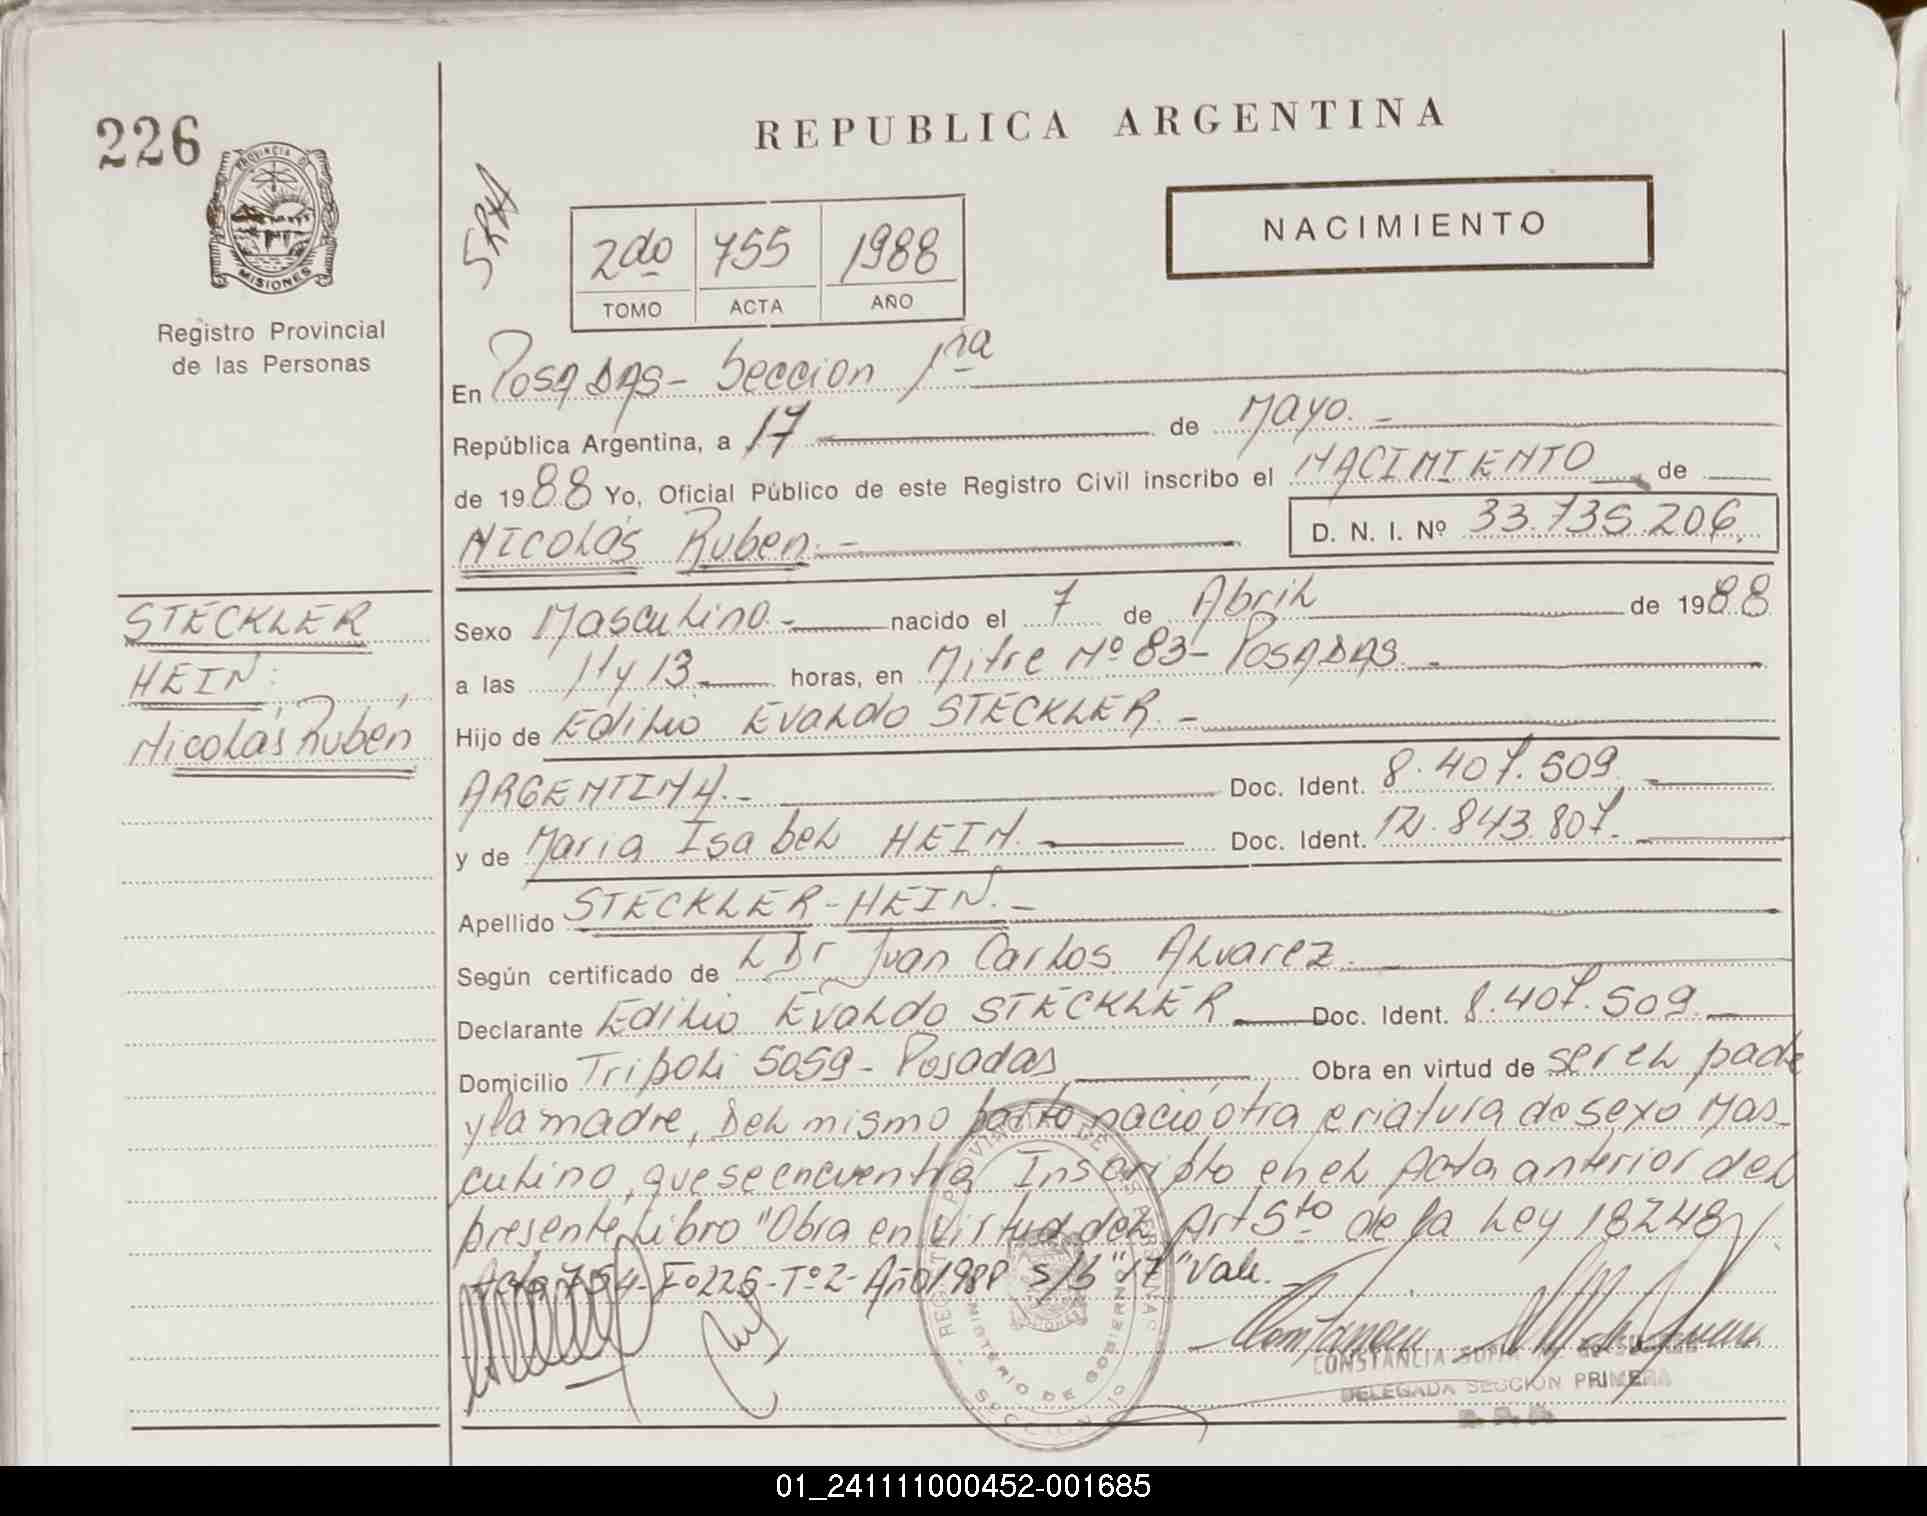 226
PROVINCIA DE
MISIONES
Registro Provincial
de las Personas
REPUBLICA ARGENTINA
2do 755 1988
TOMO ACTA AÑO
NACIMIENTO
En POSADAS - Seccion 1ra
República Argentina, a 17 de Mayo.-
de 1988 Yo, Oficial Público de este Registro Civil inscribo el NACIMIENTO de
NICOLÁS Ruben.-
D. N. I. Nº 33.735.206.
STECKLER
HEIN:
Nicolás Rubén
Sexo Masculino.- nacido el 7 de Abril de 1988
a las 11 y 13 horas, en Mitre Nº 83 - POSADAS.-
Hijo de Edilio Evaldo STECKLER.-
ARGENTINA.- Doc. Ident. 8.407.509
y de Maria Isabel HEIN. Doc. Ident. 12.843.807.
Apellido STECKLER-HEIN.-
Según certificado de L Dr Juan Carlos Alvarez.
Declarante Edilio Evaldo STECKLER Doc. Ident. 8.407.509.
Domicilio Tripoli 5059 - Posadas Obra en virtud de ser el padre
y la madre, Del mismo parto nació otra criatura de sexo Mas-
culino, que se encuentra Inscripto en el Acta anterior del
presente Libro "Obra en virtud del Art 5to de la Ley 18248
Acta 754-Fo226-Tº2-Año1988 s/b "17" Vale.
CONSTANCIA
DELEGADA SECCION PRIMERA
01_241111000452-001685